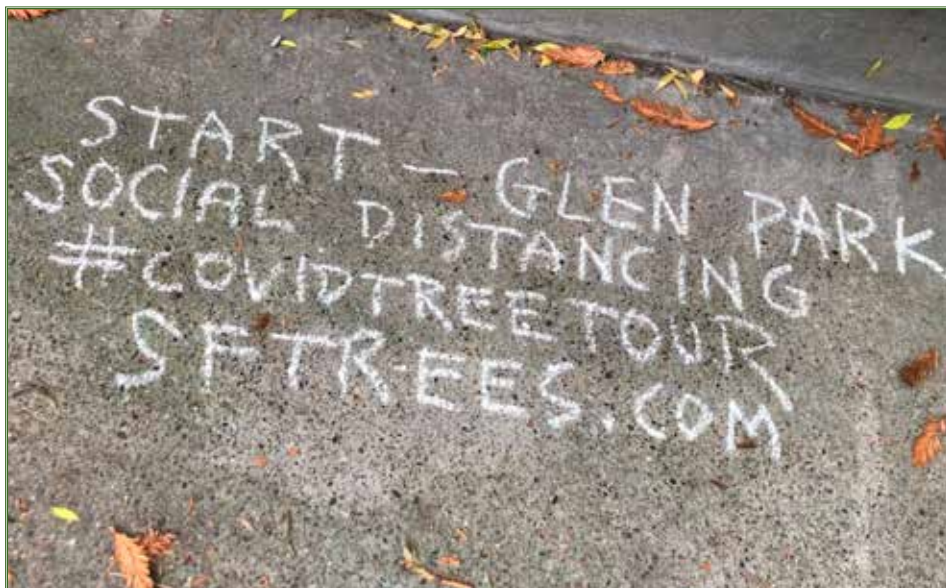 START - GLEN PARK
SOCIAL DISTANCING
#COVIDTREETOUR
SFTREES.COM